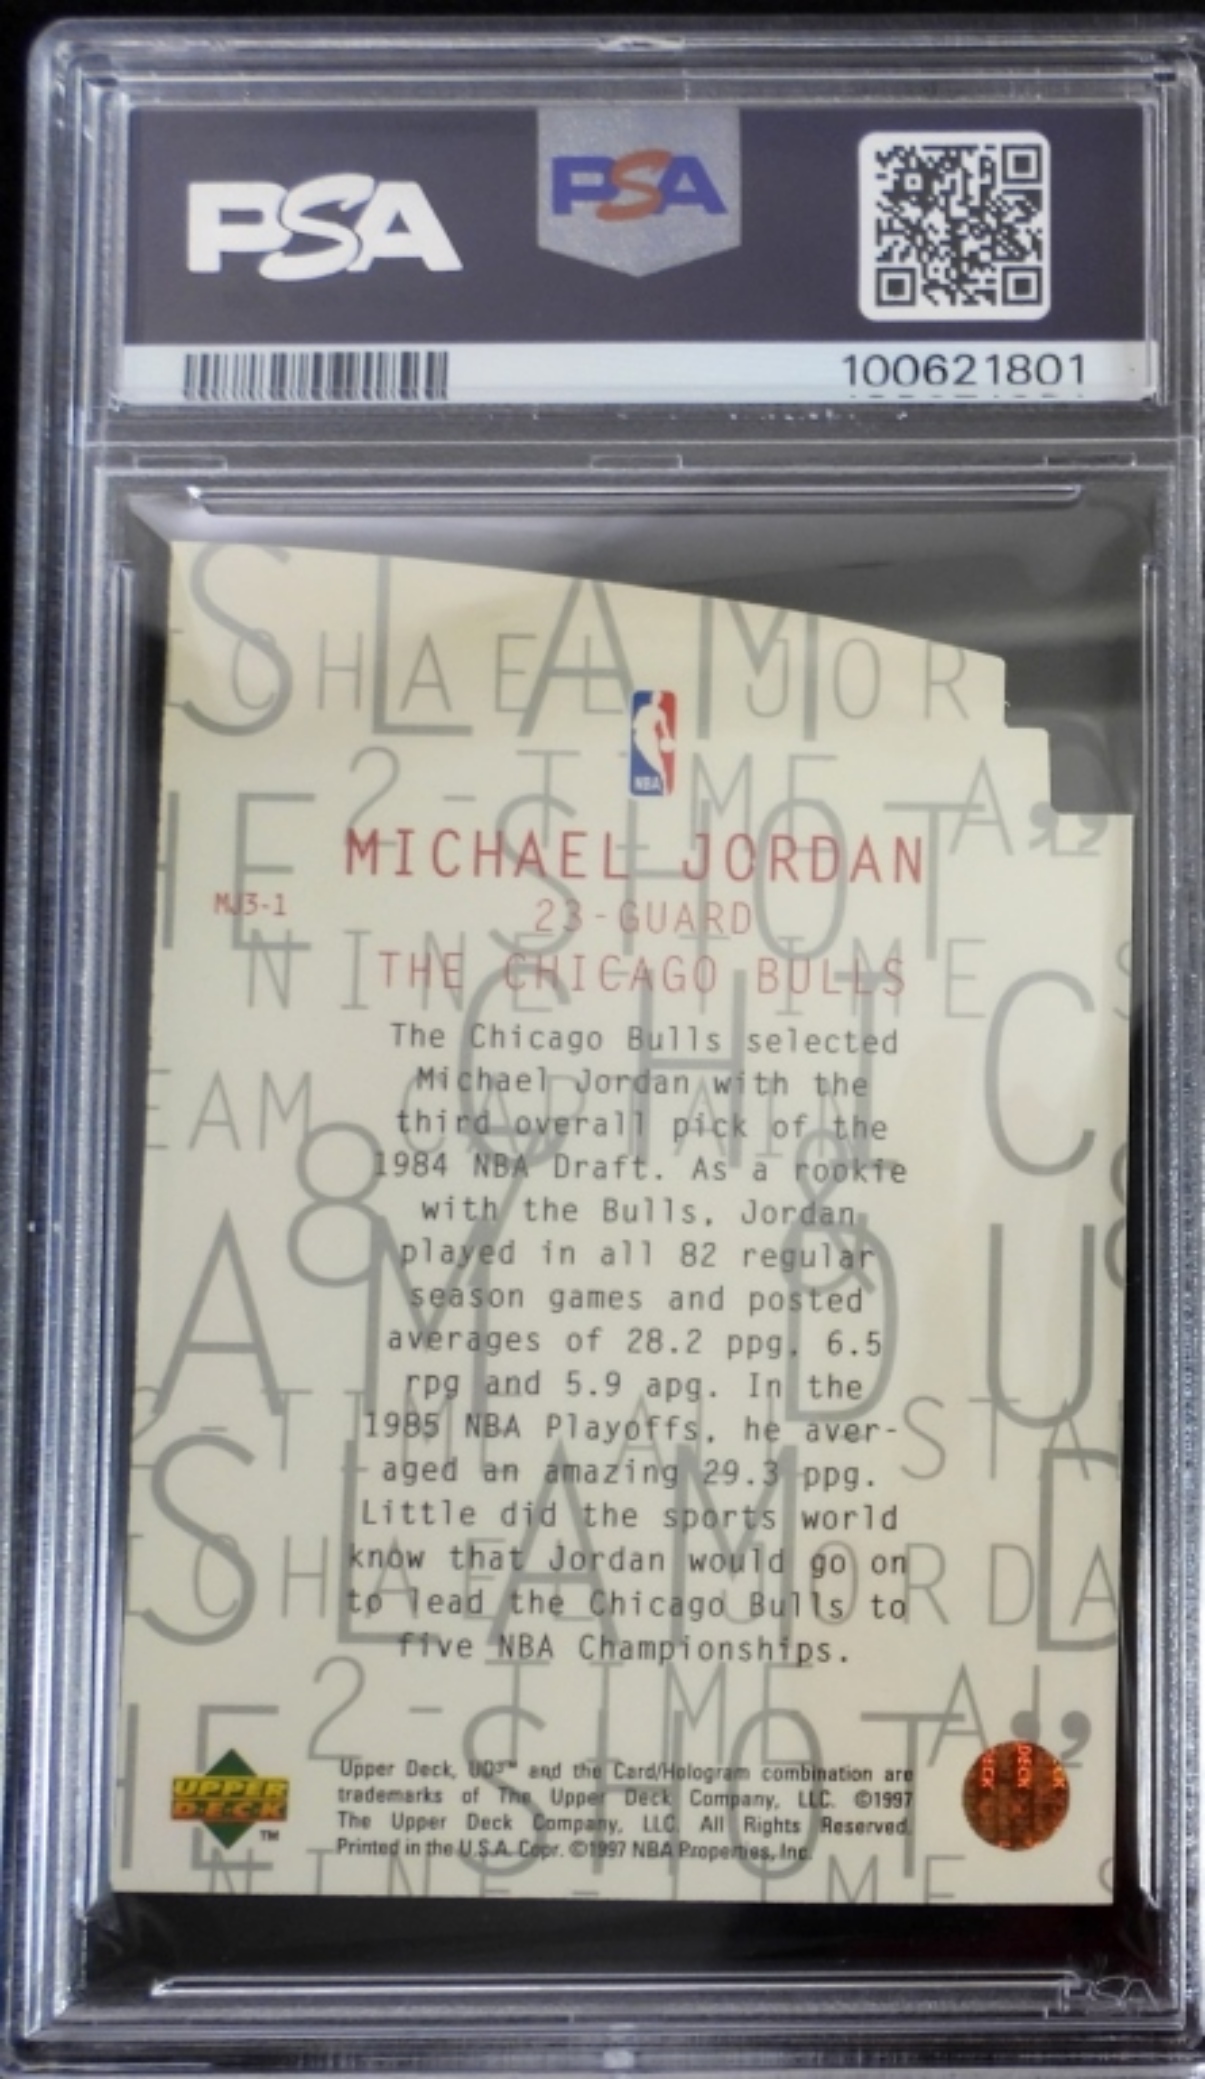 PSA
PSA
100621801
SLAM
CHAEL JOR
2-TIME A
NBA
SHOT"
MICHAEL JORDAN
MJ3-1
23-GUARD
NINE-TIME S
THE CHICAGO BULLS
CHIC
The Chicago Bulls selected
Michael Jordan with the
EAM CAPTAIN
third overall pick of the
1984 NBA Draft. As a rookie
with the Bulls, Jordan
played in all 82 regular
season games and posted
averages of 28.2 ppg, 6.5
rpg and 5.9 apg. In the
1985 NBA Playoffs, he aver-
aged an amazing 29.3 ppg.
SLAM D
Little did the sports world
know that Jordan would go on
CHAEL JORDA
to lead the Chicago Bulls to
five NBA Championships.
2-TIME AL
SHOT"
UPPER
DECK
TM
Upper Deck, UD3™ and the Card/Hologram combination are
trademarks of The Upper Deck Company, LLC. ©1997
The Upper Deck Company, LLC. All Rights Reserved.
Printed in the U.S.A. Copr. ©1997 NBA Properties, Inc.
NINE-TIME S
PSA